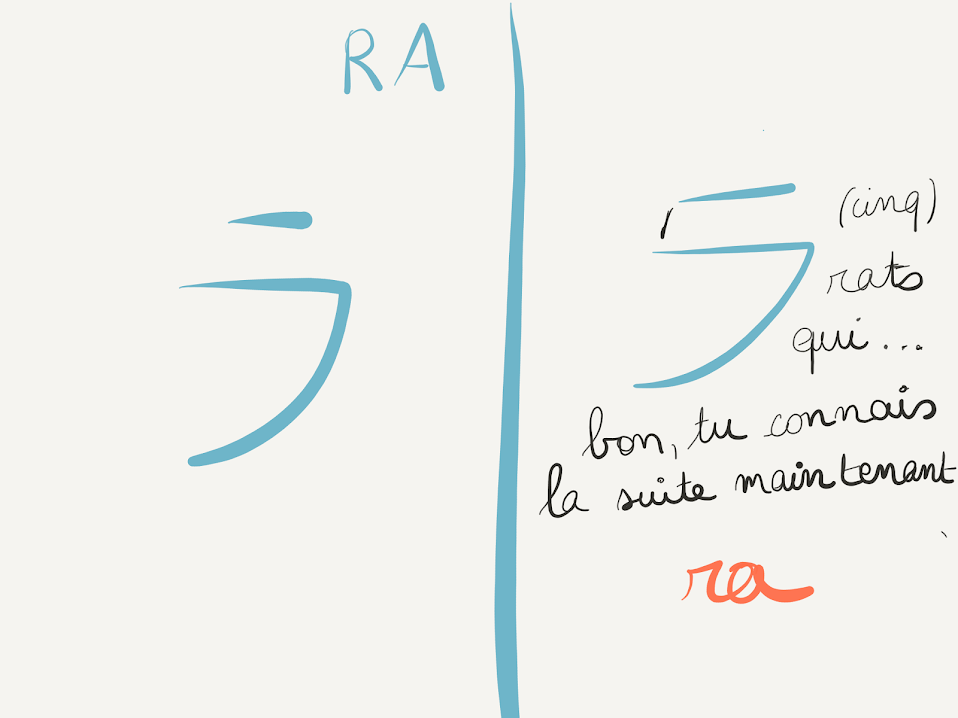 RA
ラ
ラ
(cinq)
rats
qui...
bon, tu connais
la suite maintenant
ra